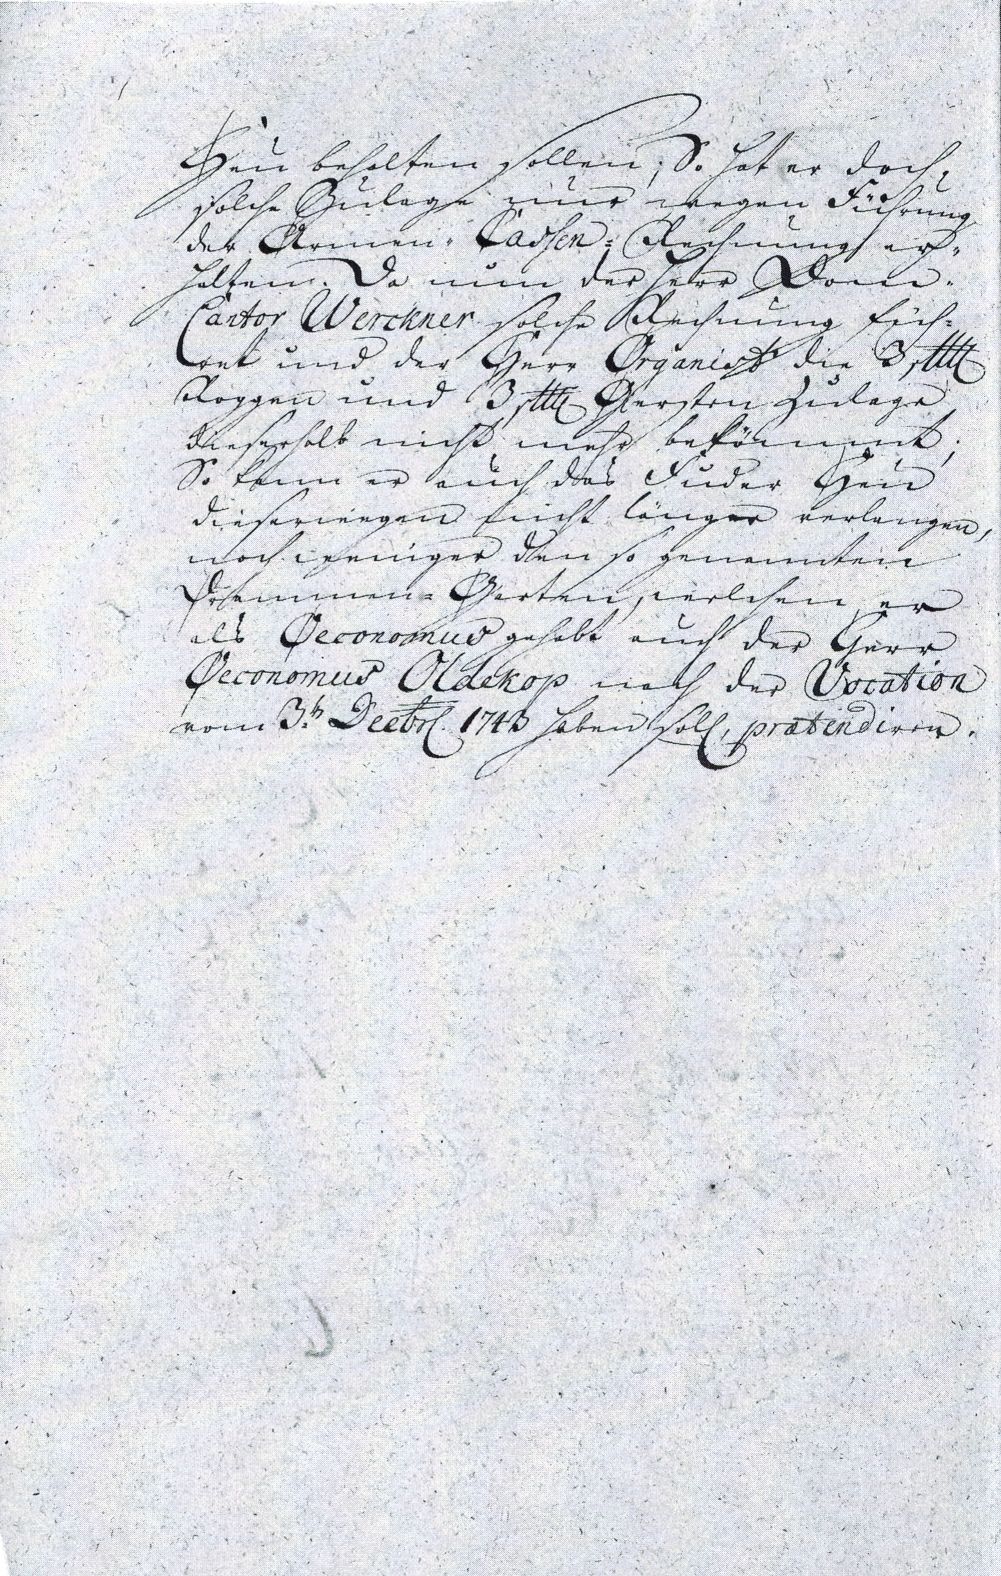 Heu behalten sollen, So hat er doch,
solche Zulage nur wegen Führung
der Armen-Cassen-Rechnung er-
halten. Da nun der Herr Dom-
Cantor Werckner solche Rechnung füh-
ret und der Herr Organist die 3
Roggen und 3 Gersten Zulage
dieserhalb nicht mehr bekömmt;
So kann er auch das Fuder Heu
dieserwegen nicht länger verlangen,
noch weniger den so genennten
Garten, welchen er
als Oeconomus gehabt auch der Herr
Oeconomus Oldekop nach der Vocation
vom 3. Decbr. 1743 haben soll, prætendiren.